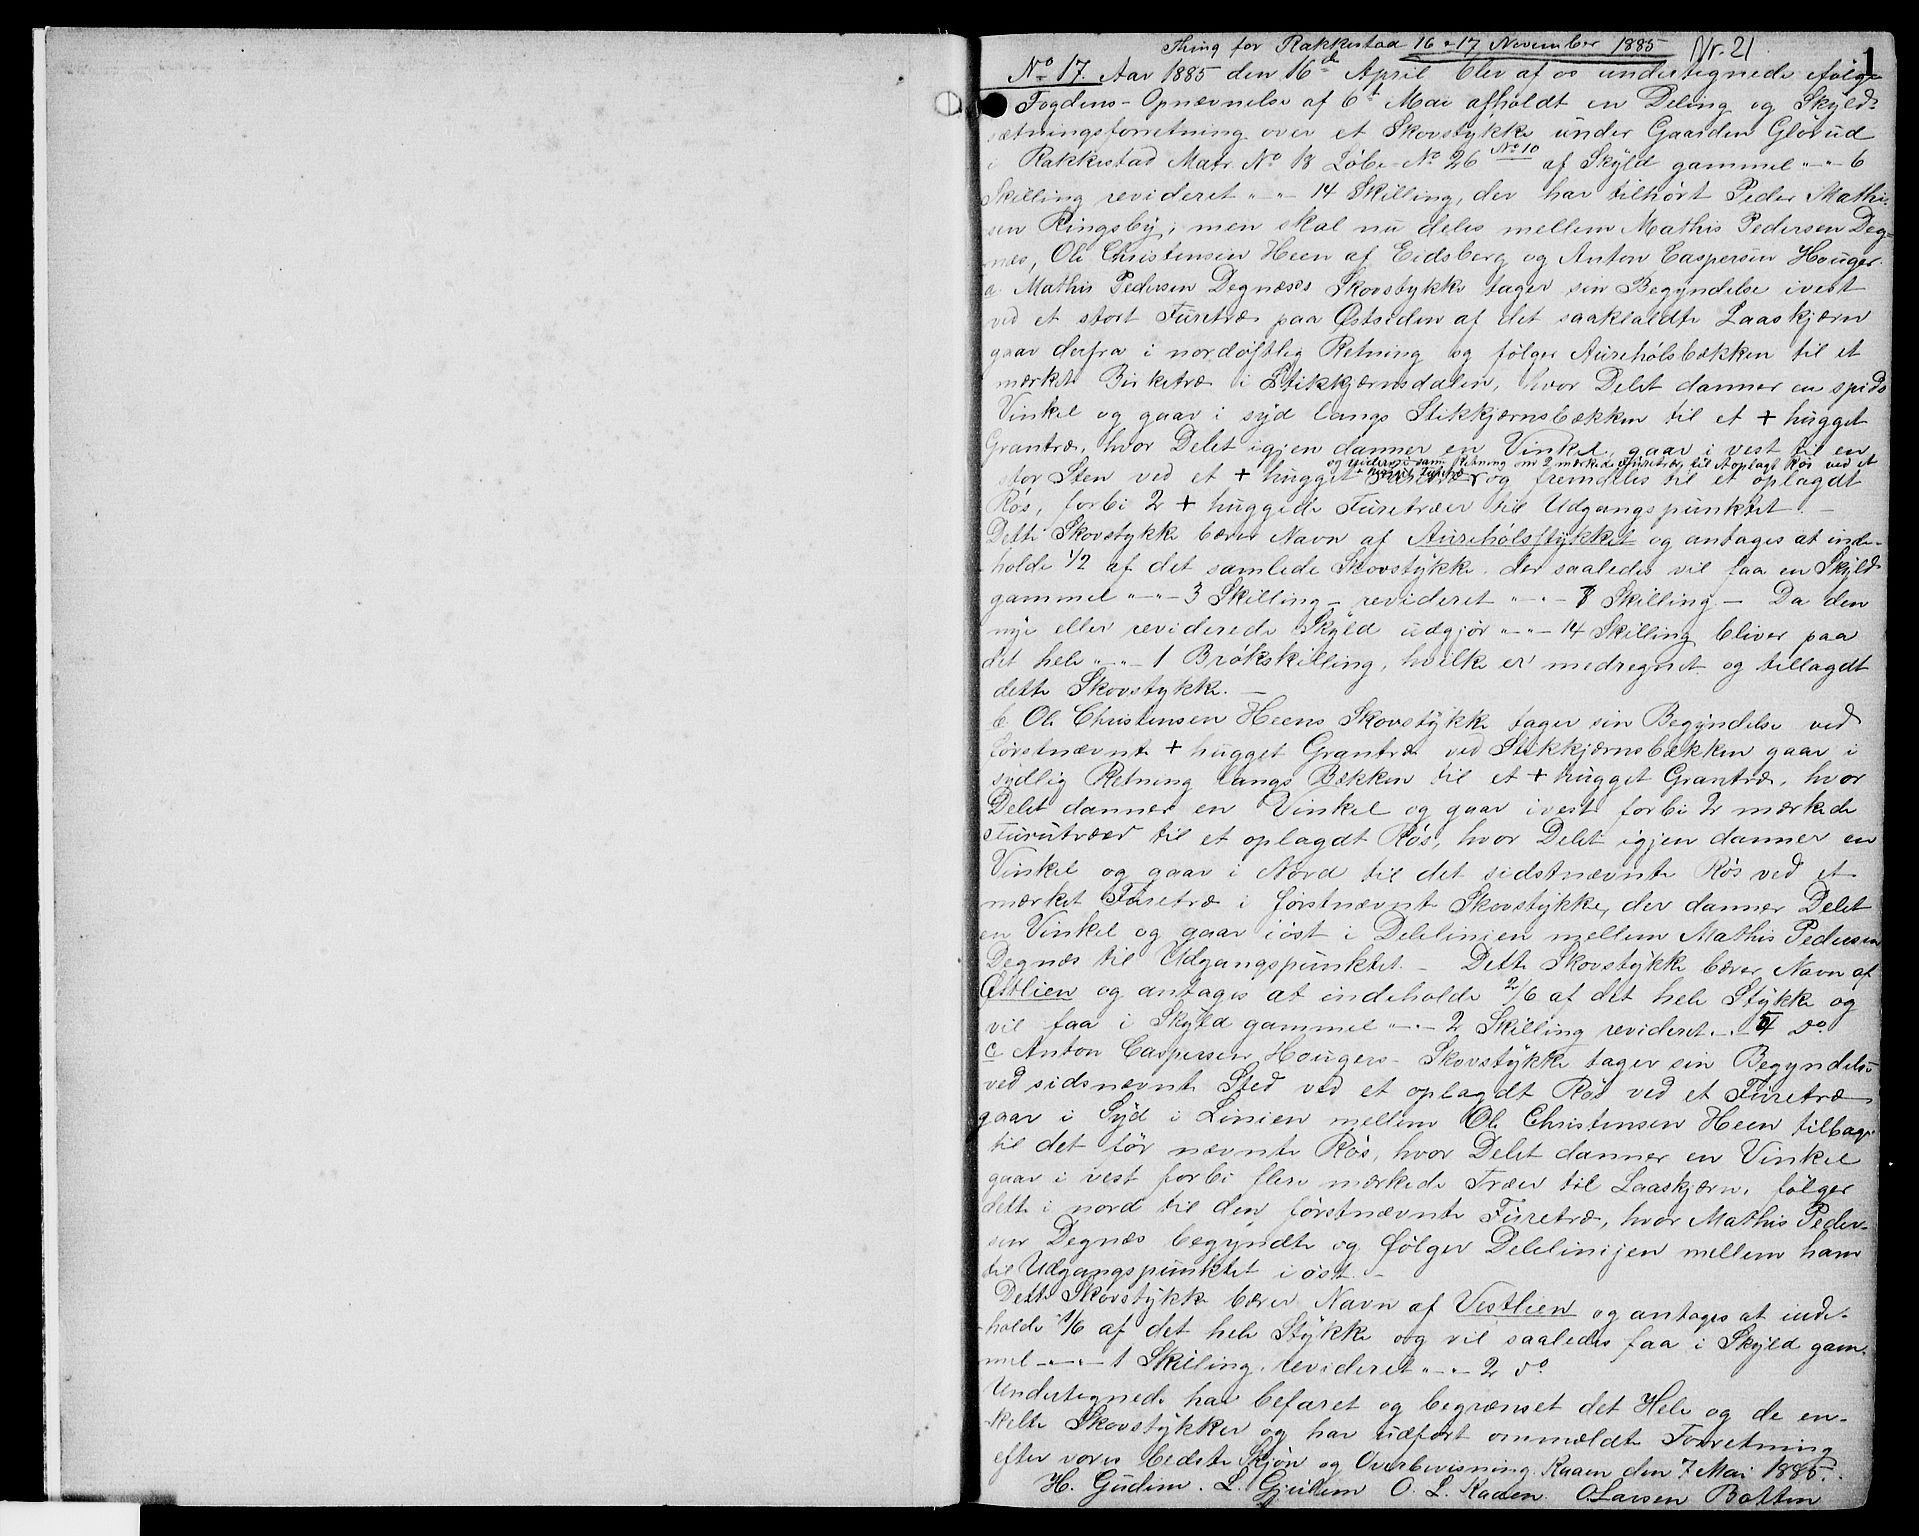 Thing for Rakkestad 16 & 17 November 1885 Nr. 21 1
No 17. Aar 1885 den 16de April blev af os undertegnede ifølge
Fogdens Opnævnelse af 6t Mai afholdt en Deling og Skyld-
sætningsforretning over et Skovstykke under Gaarden Glørud
i Rakkestad Matr. No 18 Løbe No 26 No 10 af Skyld gammel „ - „ - 6
Skilling revideret „ - „ - 14 Skilling, der har tilhørt Peder Mathi-
sen Ringsby, men skal nu deles mellem Mathis Pedersen Deg-
næs, Ole Christensen Heen af Eidsberg og Anton Caspersen Houger.
a. Mathis Pedersen Degnæses Skovstykke tager sin Begyndelse ivest
ved et stort Furetræ paa Østsiden af det saakaldte Laaskjærn
gaar derfra i nordøstlig Retning og følger Aurehølsbækken til et
mærket Birketræ i Stikkjærnsdalen, hvor Delet danner en spids
Vinkel og gaar i syd langs Stikkjærnsbækken til et + hugget
Grantræ, hvor Delet igjen danner en Vinkel, gaar i vest til en
og videre i sam. Retning om 2 mærkede Furetræer til et oplagt Røs ved et
+ hugget Furetræ
stor Sten ved et + hugget Furetræ og fremdeles til et oplagdt
Røs, forbi 2 + huggede Furetræer til Udgangspunktet. -
Dette Skovstykke bærer Navn af Aurehølsstykket og antages at inde-
holde 1/2 af det samlede Skovstykke der saaledes vil faa en Skyld
gammel „ - „ - 3 Skilling - revideret „ - „ - 8 Skilling - Da den
nye eller reviderede Skyld udgjør „ - „ - 14 Skilling bliver paa
det hele „ - „ - 1 Brøkskilling, hvilke er medregnet og tillagdt
dette Skovstykke. -
b Ole Christensen Heens Skovstykke tager sin Begyndelse ved
førstnævnte + hugget Grantræ ved Stikkjærnsbækken gaar i
sydlig Retning langs Bækken til et + hugget Grantræ, hvor
Delet danner en Vinkel og gaar ivest forbi 2 mærkede
Furutræer til et oplagdt Røs, hvor Delet igjen danner en
Vinkel og gaar i Nord til det sidstnævnte Røs ved et
mærket Furetræ i førstnævnte Skovstykke, der danner Delet
en Vinkel og gaar i øst i Delelinien mellem Mathis Pedersen
Degnæs til Udgangspunktet. - Dette Skovstykke bærer Navn af
Østlien og antages at indeholde 2/6 af det hele Stykke og
vil faa i Skyld gammel „ - „ - 2 Skilling revideret „ - 4 do
c Anton Caspersen Hougers Skovstykke tager sin Begyndelse
ved sidsnævnte Sted ved et oplagdt Røs ved et Furetræ
gaar i Syd i Linien mellem Ole Christensen Heen tilbage
til det før nævnte Røs, hvor Delet danner en Vinkel
gaar i vest forbi flere mærkede Træer til Laaskjærn, følger
dette i nord til den førstnævnte Furetræ, hvor Mathis Peder-
sen Degnæs begyndte og følger Delelinijen mellem ham
til Udgangspunktet i øst. -
Dette Skovstykke bærer Navn af Vestlien og antages at inde-
holde 1/6 af det hele Stykke og vil saaledes faa i Skyld gam-
mel „ - „ - 1 Skilling, revideret „ - „ - 2 do
Undertegnede har befaret og begrænset det Hele og de en-
kelte Skovstykker og har udført ommældte Forretning
efter vores bedste Skjøn og Overbevisning. Kaaen den 7 Mai 1885.
H. Gudim. L. Gjulem O. L. Kaaen. O Larsen Botten